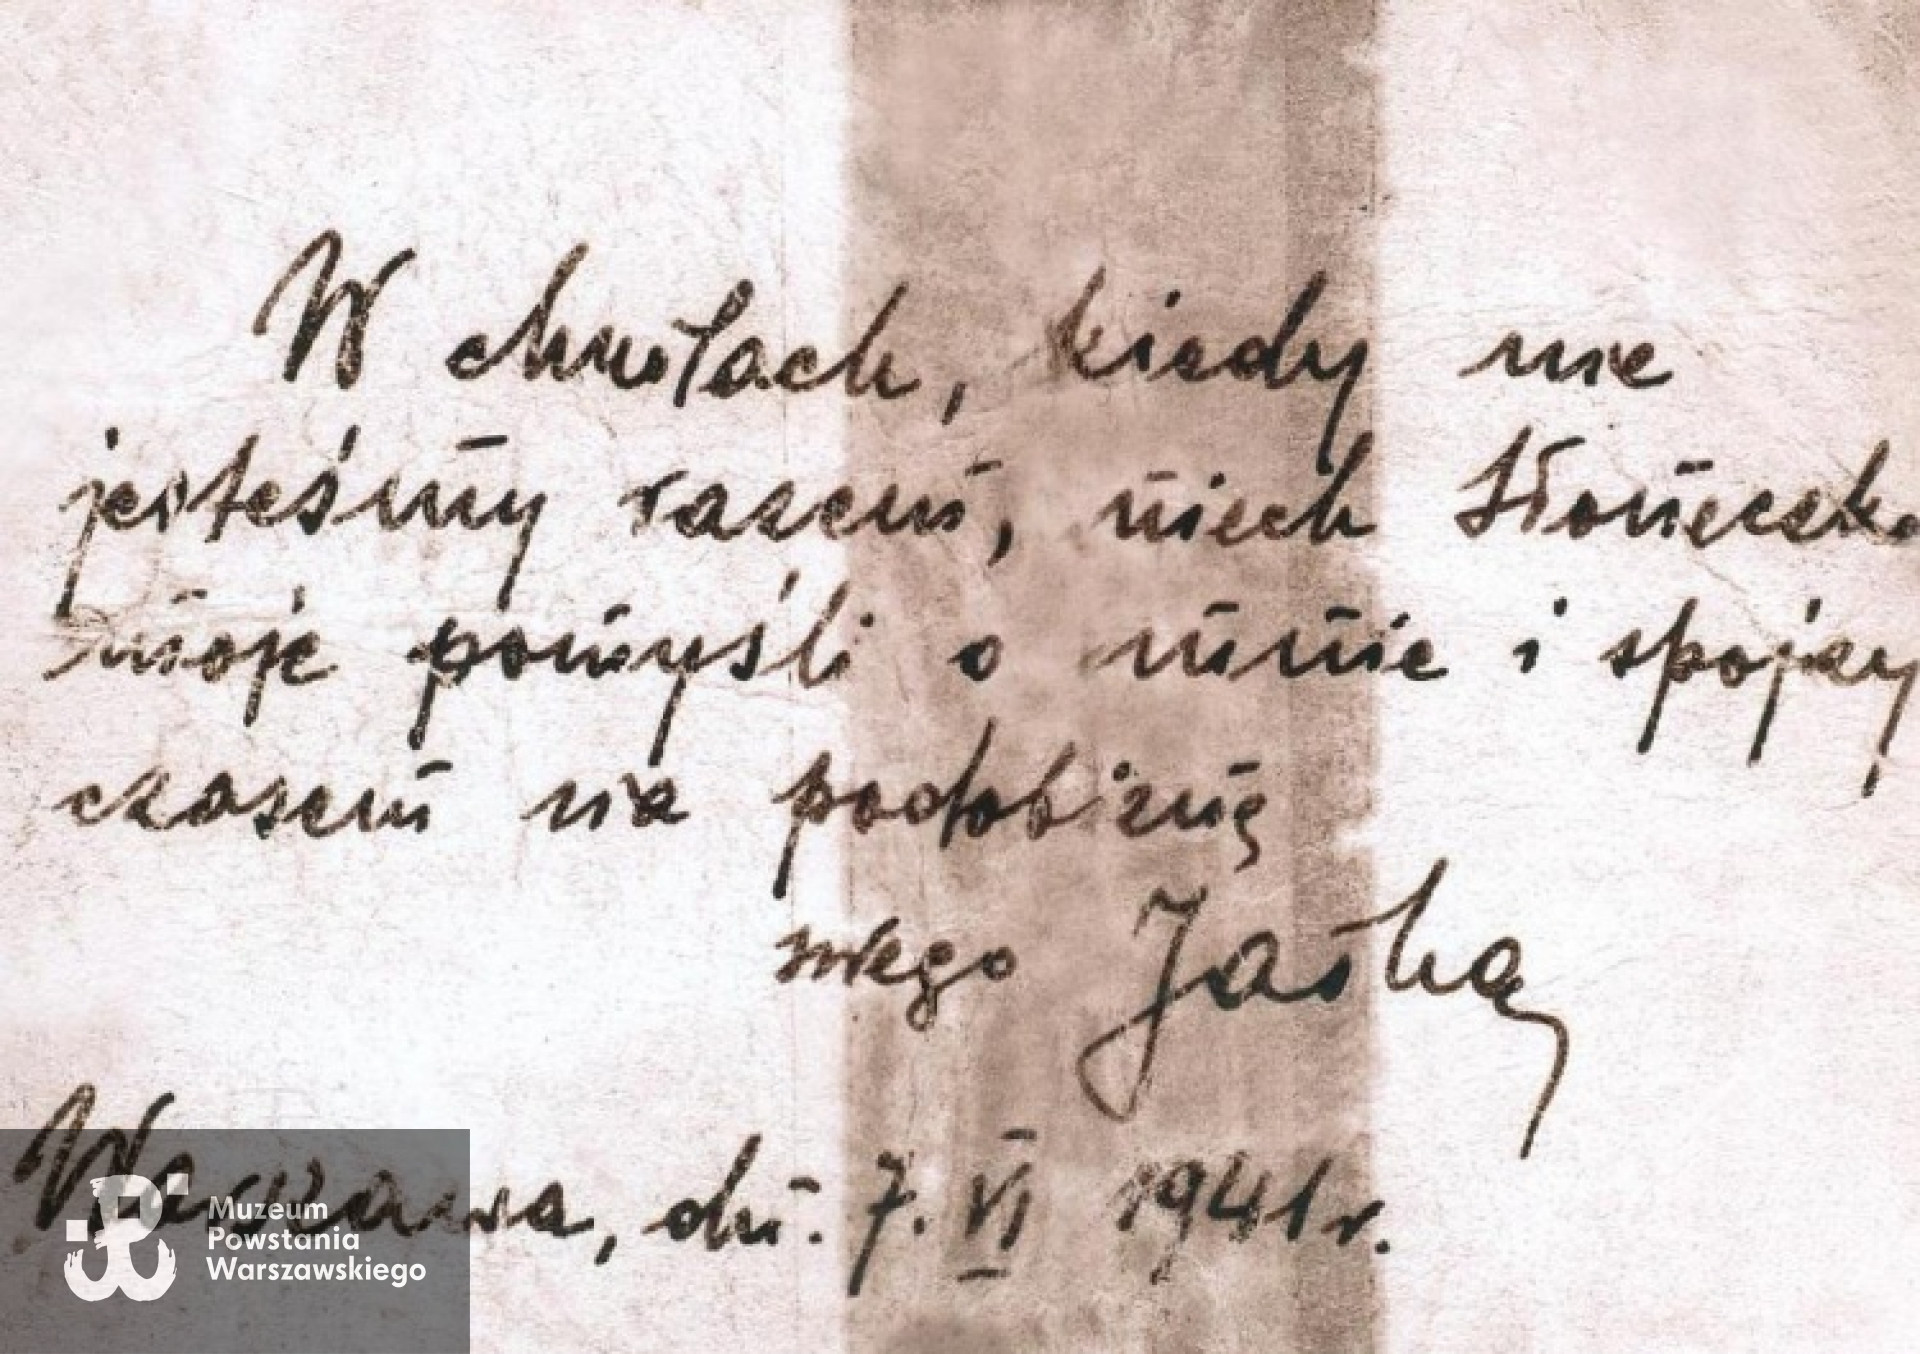 W chwilach, kiedy nie
jesteśmy razem, niech Słoneczko
moje pomyśli o mnie i spojrzy
czasem na podobiznę
swego Jaśka
Warszawa, dn. 7. VI 1941 r.
Muzeum
Powstania
Warszawskiego